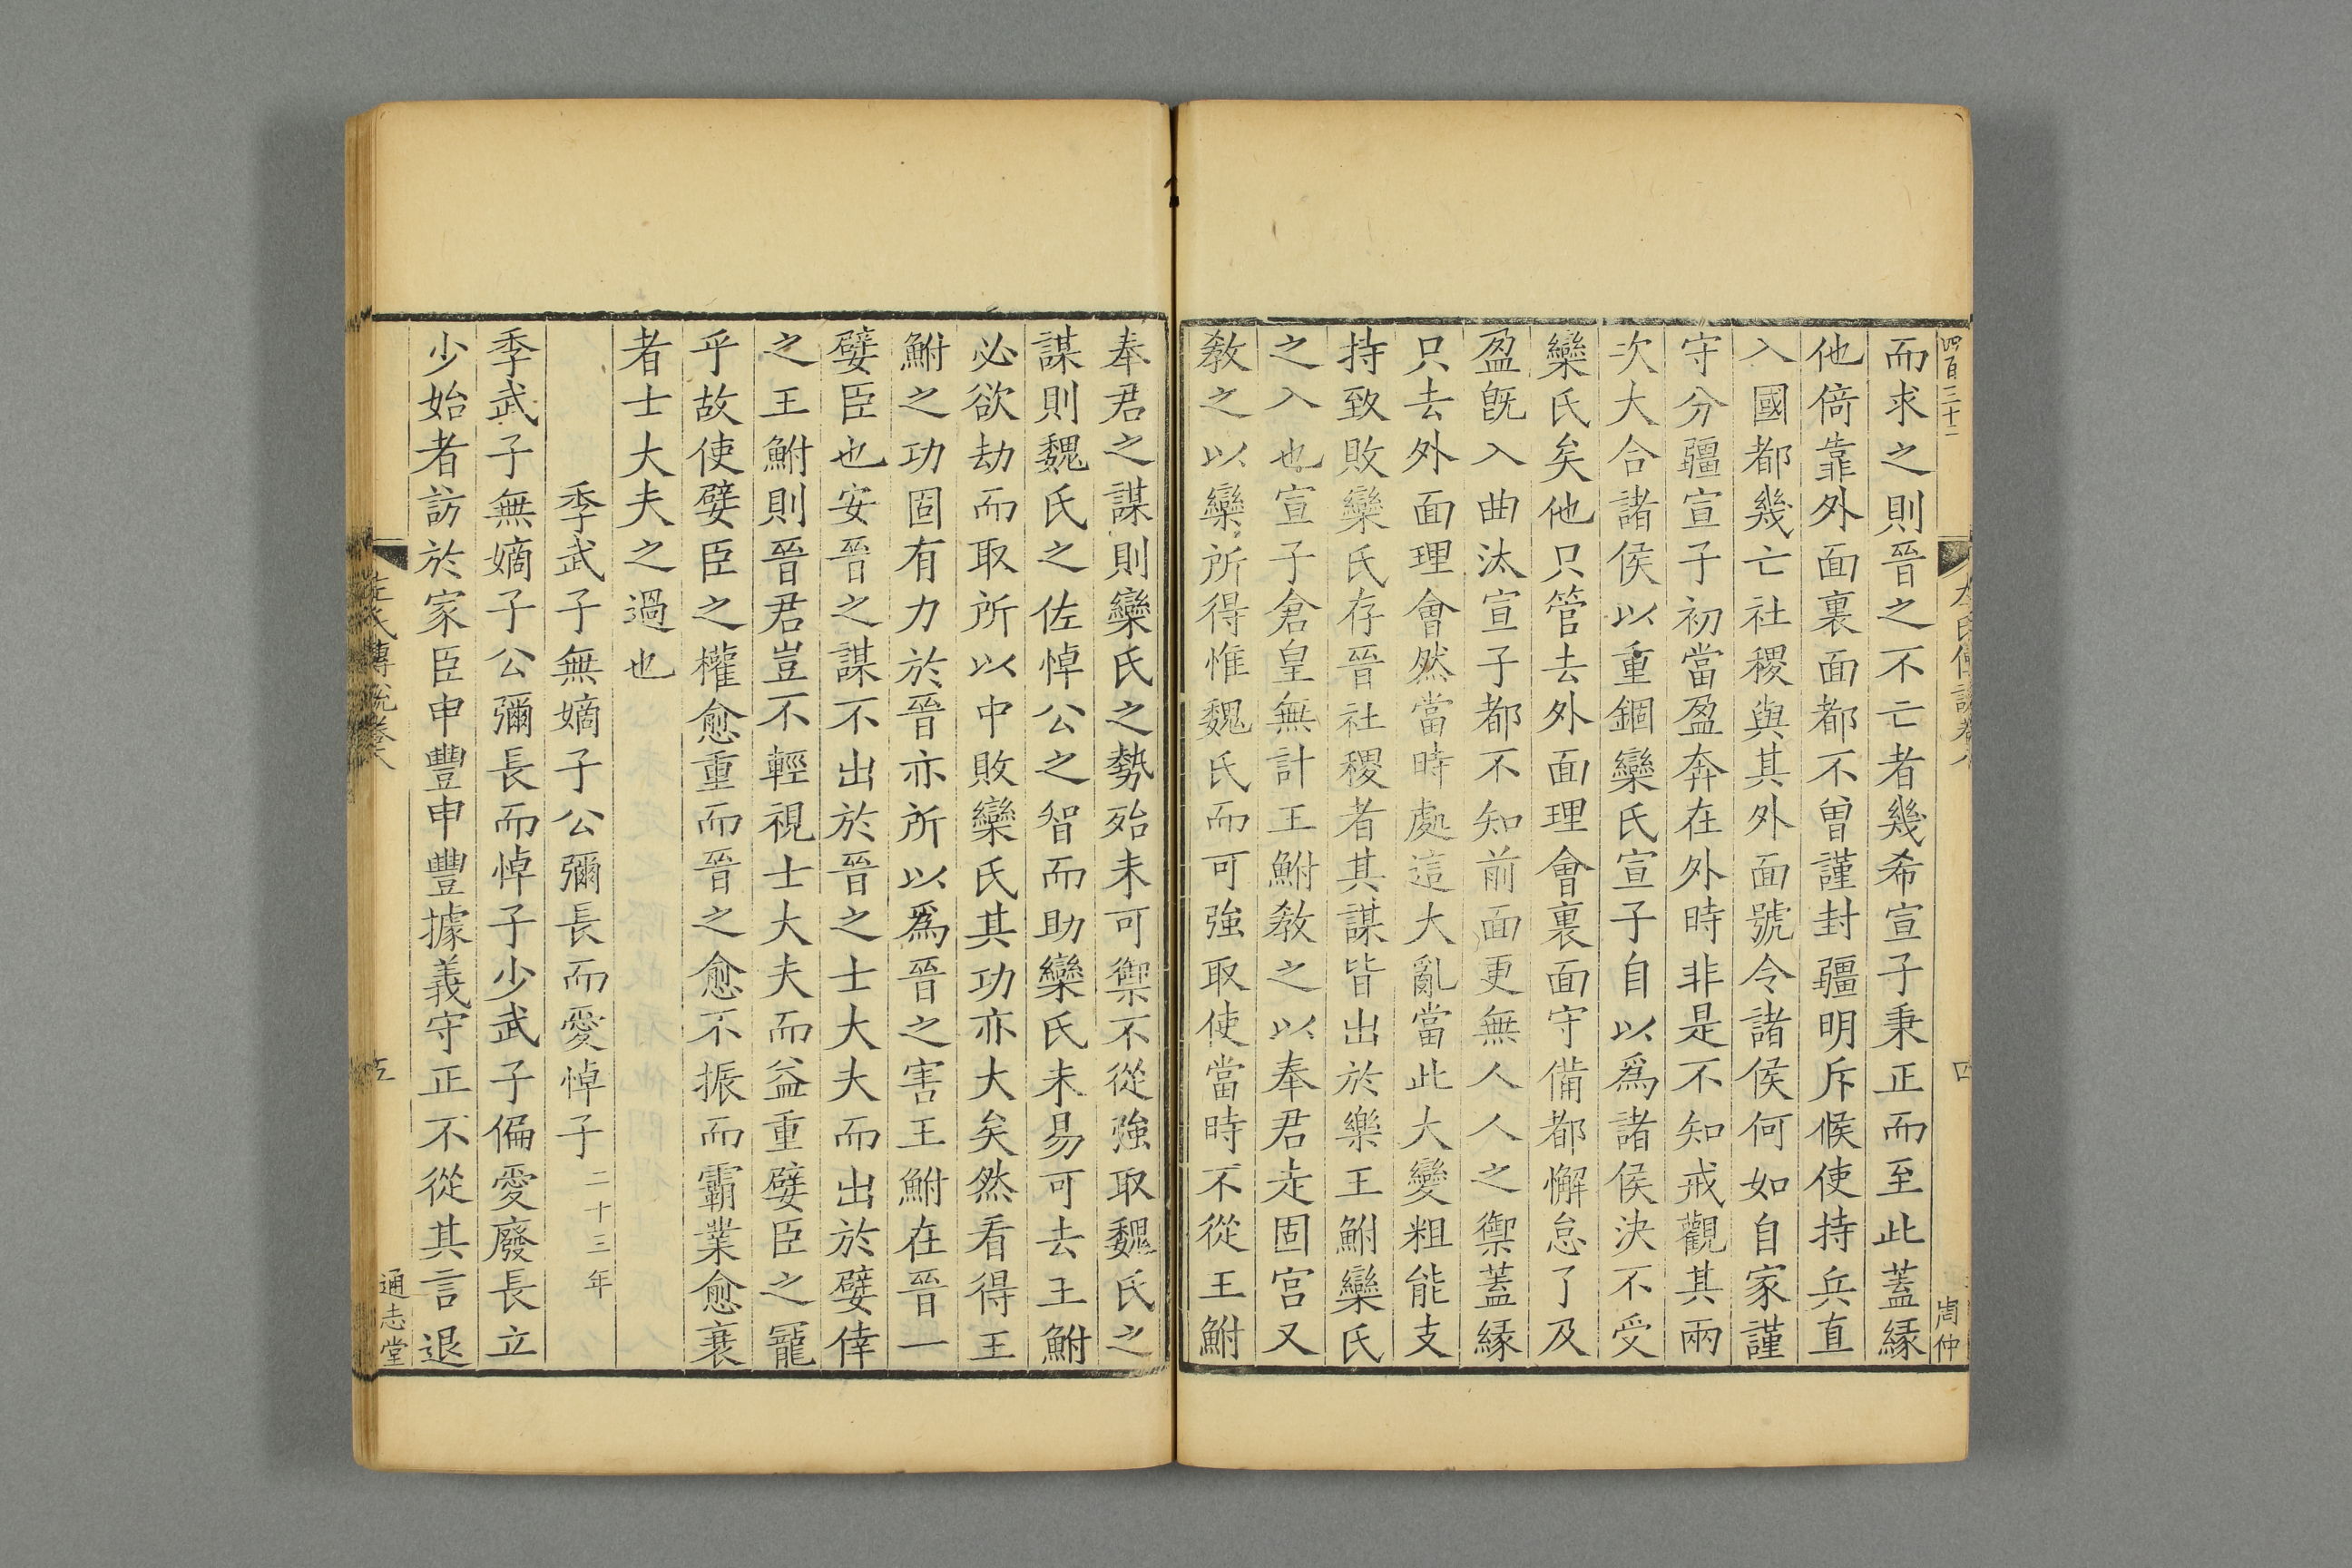 四百三十二
左氏傳說卷八
四
周仲
而求之則晉之不亡者幾希宣子秉正而至此蓋緣
他倚靠外面裏面都不曾謹封疆明斥候使持兵直
入國都幾亡社稷與其外面號令諸侯何如自家謹
守分疆宣子初當盈奔在外時非是不知戒觀其兩
次大合諸侯以重錮欒氏宣子自以爲諸侯決不受
欒氏矣他只管去外面理會裏面守備都懈怠了及
盈旣入曲沃宣子都不知前面更無人人之禦蓋緣
只去外面理會然當時處這大亂當此大變粗能支
持致敗欒氏存晉社稷者其謀皆出於樂王鮒欒氏
之入也宣子倉皇無計王鮒敎之以奉君走固宮又
敎之以欒所得惟魏氏而可強取使當時不從王鮒
奉君之謀則欒氏之勢殆未可禦不從強取魏氏之
謀則魏氏之佐悼公之智而助欒氏未易可去王鮒
必欲劫而取所以中敗欒氏其功亦大矣然看得王
鮒之功固有力於晉亦所以爲晉之害王鮒在晉一
嬖臣也安晉之謀不出於晉之士大夫而出於嬖倖
之王鮒則晉君豈不輕視士大夫而益重嬖臣之寵
乎故使嬖臣之權愈重而晉之愈不振而霸業愈衰
者士大夫之過也
季武子無嫡子公彌長而愛悼子二十三年
季武子無嫡子公彌長而悼子少武子偏愛廢長立
少始者訪於家臣申豐申豐據義守正不從其言退
左氏傳說卷八
五
通志堂